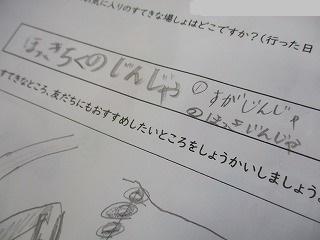 気に入りのすてきな場しょはどこですか？（行った日
ほっきちくのじんじゃ
①すがじんじゃ
②ほっきじんじゃ
すてきなところ、友だちにもおすすめしたいところをしょうかいしましょう。